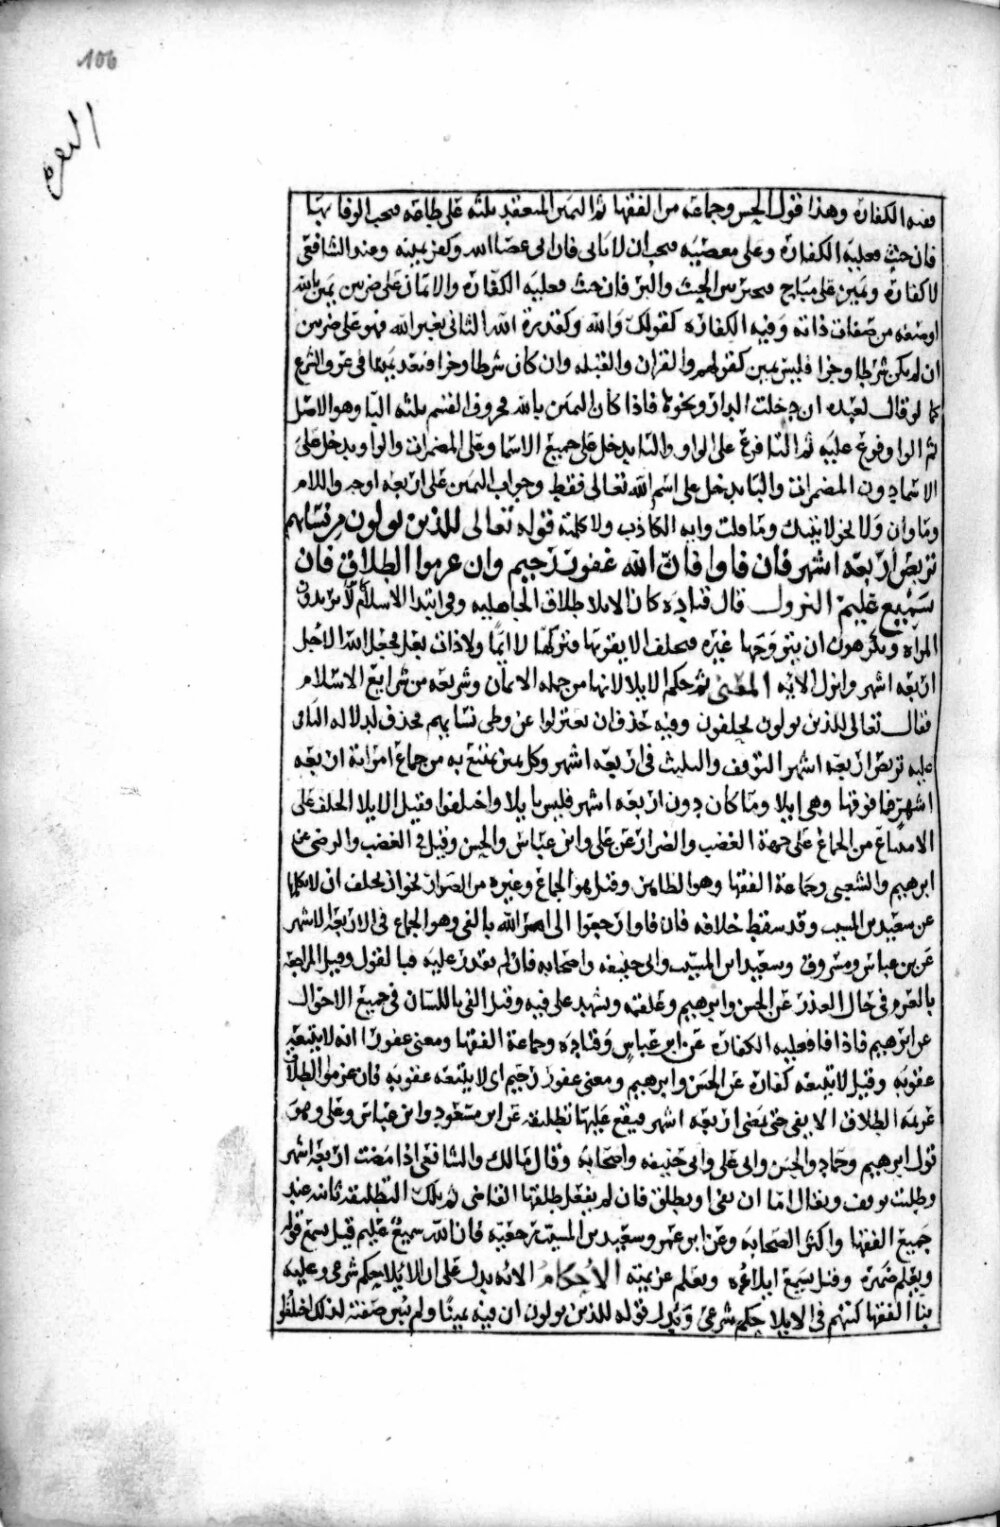 106
البقرة
ففيه الكفارة وهذا قول الحسن وجماعة من الفقها ثم اليمين المنعقد ثلثة على طاعة فيجب الوفا بها
فان حنث فعليه الكفارة وعلى معصية فيجب ان لا ياتى فان اتى عصا الله وكفر يمينه وعند الشافعى
لا كفارة ويمين على مباح فيخير بين الحنث والبر فان حنث فعليه الكفارة والايمان على ضربين يمين بالله
او صفه من صفات ذاته وفيه الكفارة كقولك والله وكقدرة الله الثانى بغير الله فهو على ضربين
ان لم يكن شرطا وجزا فليس يمين كقولهم والقران والقبله وان كان شرطا وجزا فيعد يمينا فى عرف الشرع
كما لو قال لعبده ان دخلت الدار ونحوه فاذا كان اليمين بالله فحروف القسم ثلثة البا وهو الاصل
ثم الواو فرع عليه ثم التا فرع على الواو والبا يدخل على جميع الاسما وعلى المضمرات والواو يدخل على
الاسما دون المضمرات والتا يدخل على اسم الله تعالى فقط وجواب اليمين على اربعه اوجه واللام
وما وان ولا نحو لاتينك وما قلت وانه الكاذب ولا كلمته قوله تعالى للذين يولون من نسايهم
تربص اربعه اشهر فان فاوا فان الله غفور رحيم وان عزموا الطلاق فان
سميع عليم النزول قال قتاده كان الايلا طلاق الجاهليه وفى ابتدا الاسلام لا يريدون
المراه ويكرهون ان يتزوجها غيره فيحلف الا يقربها فيتركها لا ايما ولا ذات بعل فجعل الله الاجل
اربعه اشهر وانزل الايه المعنى ثم حكم الايلا لانها من جمله الايمان وشريعه من شرايع الاسلام
فقال تعالى للذين يولون يحلفون وفيه حذف ان يعتزلوا عن وطى نسايهم فحذف لدلاله الباقى
عليه تربص اربعه اشهر التوقف والتلبث فى اربعه اشهر وكل يمين يمتنع به من جماع امراته اربعه
اشهر فما فوقها وهى ايلا وما كان دون اربعه اشهر فليس بايلا واختلفوا فقيل الايلا الحلف على
الامتناع من الجماع على جهة الغضب والضرار عن على وابن عباس والحسن وقيل فى الغضب والرضى عن
ابرهيم والشعبى وجماعة الفقها وهو الظاهر وقيل هو الجماع وغيره من الضرار نحو ان يحلف ان لا يكلمها
عن سعيد بن المسيب وقد سقط خلافه فان فاوا رجعوا الى امر الله بالفى وهو الجماع فى الاربعه الاشهر
عن بن عباس ومسروق وسعيد ابن المسيب وابى حنيفه واصحابه فان لم يقدر عليه فبالقول وقيل المراجعه
بالعزم فى حال العذر عن الحسن وابرهيم وعلقمه ويشهد على فيه وقيل الفى باللسان فى جميع الاحوال
عن ابرهيم فاذا فا فعليه الكفارة عن ابن عباس وقتاده وجماعة الفقها ومعنى غفور انه لا يتبعه
عقوبه وقيل لا يتبعه كفارة عن الحسن وابرهيم ومعنى غفور رحيم اى لا يتبعه عقوبه فان عزموا الطلاق
عزيمة الطلاق الا يفى حتى يمضى اربعه اشهر فيقع عليها تطليقه عن ابن مسعود وابن عباس وعلى وهو
قول ابرهيم وحماد والحسن وابى على وابى حنيفه واصحابه وقال مالك والشافعى اذا مضت اربعه اشهر
وطلبت يوقف ويقال اما ان يفى او يطلق فان لم يفعل طلقها القاضى ثم تلك التطليقه ثانيه عند
جميع الفقها واكثر الصحابه وعن ابو عمر وسعيد بن المسيب رجعيه فان الله سميع عليم قيل يسمع قوله
ويعلم ضميره وقيل سميع ايلاءه ويعلم عزيمته الاحكام الايه يدل على ان للايلا حكم شرعى وعليه
بنا الفقها كتبهم فى الايلا حكم شرعى ويدل قوله للذين يولون ان فيه يمينا ولم يبين صفته لذلك اختلفوا